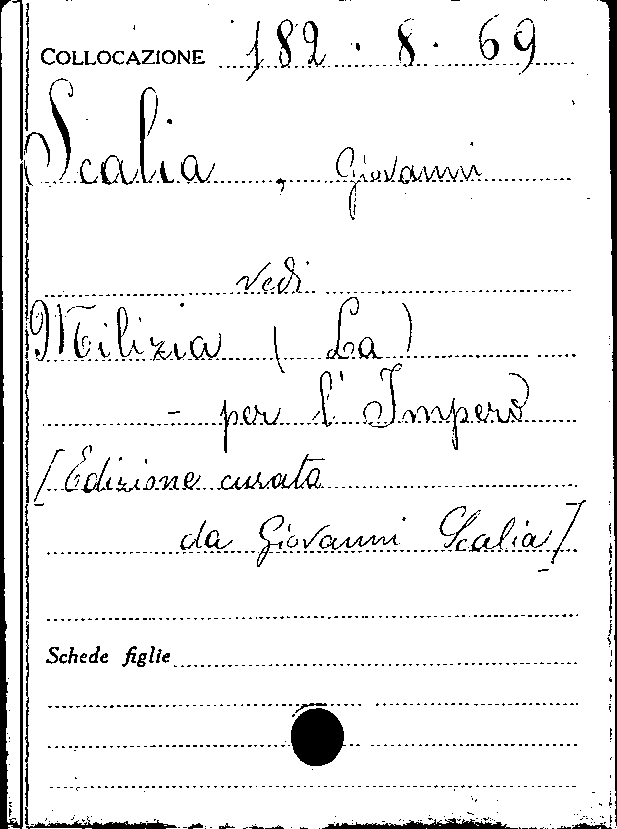 COLLOCAZIONE 182.8.69
Scalia, Giovanni
vedi
Milizia (La)
- per l'Impero
[Edizione curata
da Giovanni Scalia]
Schede figlie